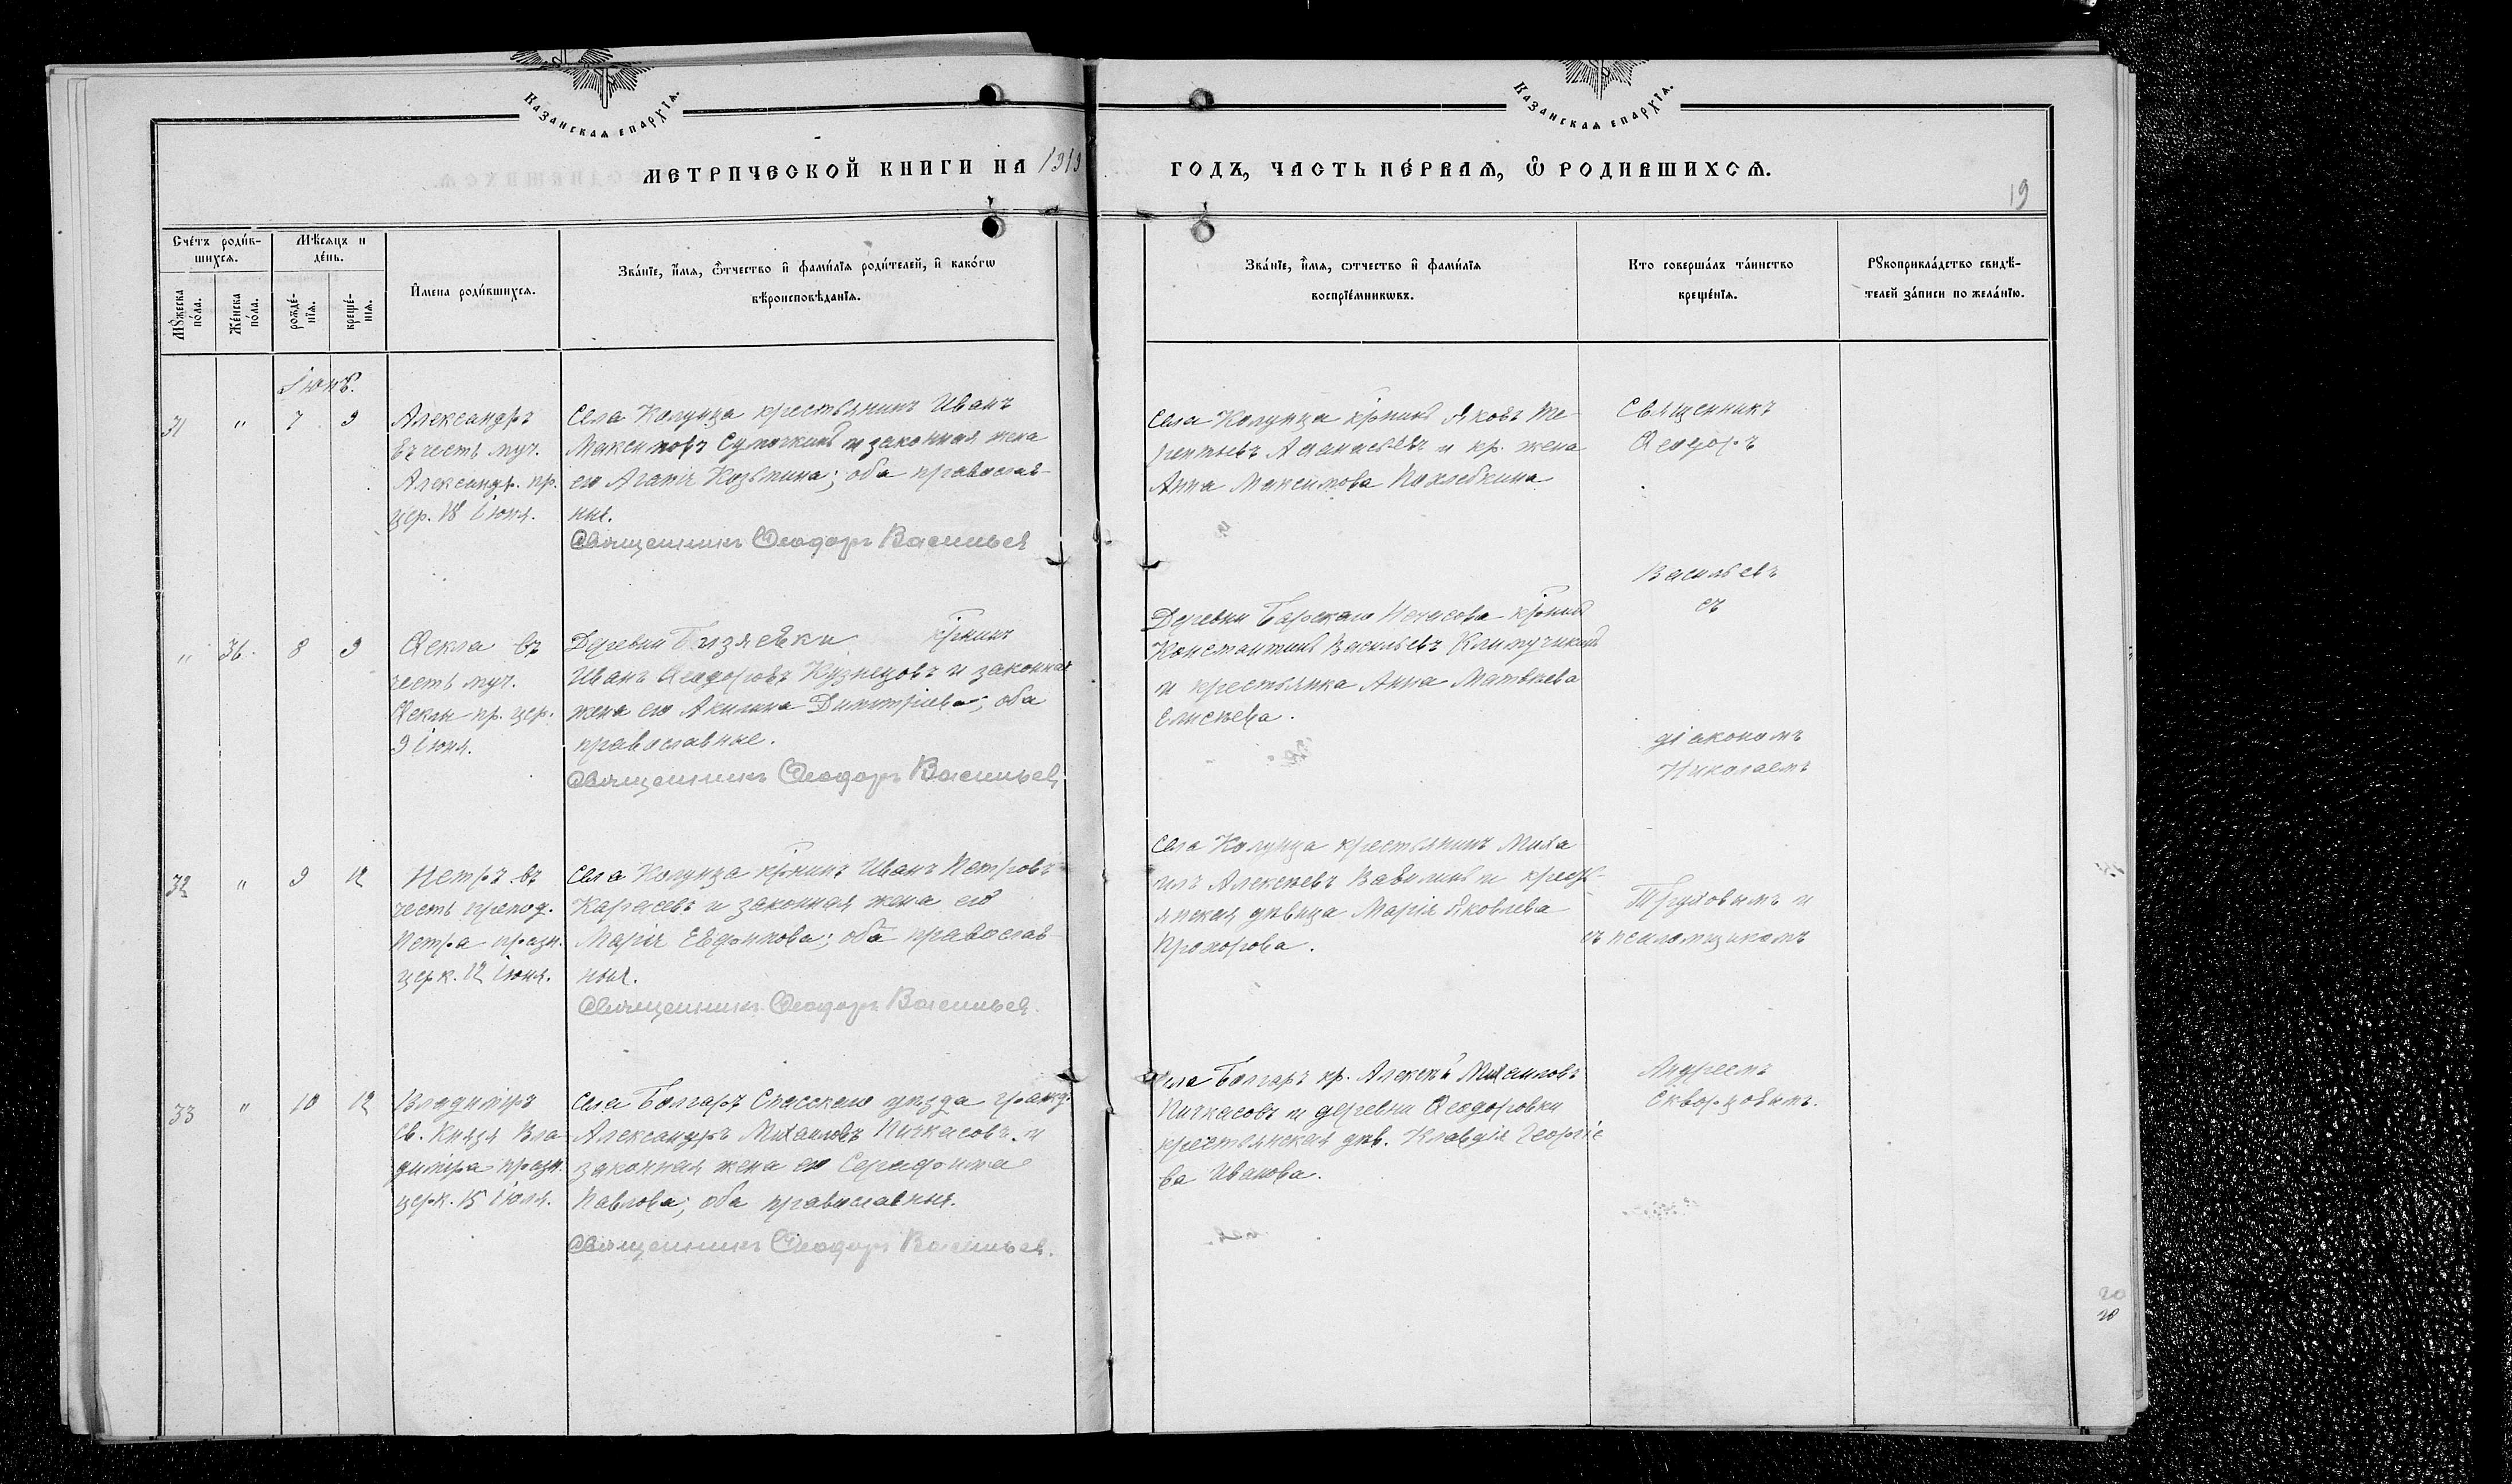 Казанская епархїѧ.
Казанская епархїѧ.
МЕТРИЧЕСКОЙ КНИГИ НА 1919
ГОДЪ, ЧАСТЬ ПЕ́РВАѦ, Ѿ РОДИВШИХСѦ.
19
Сче́тъ роди́вшихсѧ.
Мѣ́сѧцъ и де́нь.
Мꙋ́жеска по́ла.
Же́нска по́ла.
рожде́нїѧ.
креще́нїѧ.
И҆мена роди́вшихсѧ.
Зва́нїе, и҆́мѧ, ѻ҆́тчество и҆ фами́лїѧ роди́телей, и҆ како́гѡ
вѣроисповѣ́данїѧ.
Зва́нїе, и҆́мѧ, ѻтчество и҆ фами́лїѧ
воспрїе́мникѡвъ.
Кто соверша́лъ та́инство
креще́нїѧ.
Рꙋкоприкла́дство свидѣ́телей за́писи по жела́нїю.
Іюнь.
31 " 7 9
Александръ
въ честь муч.
Александр. пр.
цер. 18 Іюня.
Села Колунца крестьянинъ Иванъ
Максимовъ Сумочкинъ и законная жена
его Агапія Козьмина; оба православ-
ные.
Священникъ Ѳеодоръ Васильев
Села Колунца кр-нинъ Яковъ Те-
рентьевъ Аѳанасьевъ и кр. жена
Анна Максимова Похлебкина
Священникъ
Ѳеодоръ
Васильевъ
съ
" 36. 8 9
Ѳекла въ
честь муч.
Ѳеклы пр. цер.
9 Іюня.
Деревни Бизяевки кр-нинъ
Иванъ Ѳеодоровъ Кузнецовъ и законная
жена его Акилина Димитріева; оба
православные.
Священникъ Ѳеодоръ Васильев
Деревни Барскаго кр-нинъ
Константинъ Васильевъ
и крестьянка Анна Матвѣева
Елисѣева.
діакономъ
Николаемъ
32 " 9 12
Петръ въ
честь препод.
Петра праздн.
церк. 12 Іюня.
Села Колунца кр-нинъ Иванъ Петровъ
Карасевъ и законная жена его
Марія Евфимова; оба православ
ные.
Священникъ Ѳеодоръ Васильев.
Села Колунца крестьянинъ Миха
илъ Алексѣевъ Вавилинъ и кресть-
янская дѣвица Марія Яковлева
Прохорова.
и
съ псаломщикомъ
33 " 10 12
Владиміръ
св. Князя Вла
диміра праздн.
церк. 15 Іюля.
Села Болгаръ Спасскаго уѣзда гражд.
Александръ Михаиловъ Пичкасовъ и
законная жена его Серафима
Павлова; оба православные.
Священникъ Ѳеодоръ Васильев.
Села Болгаръ кр. Алексѣй Михаиловъ
Пичкасовъ и деревни Ѳеодоровки
крестьянская дѣв. Клавдія Георгіе
ва Иванова.
Андреемъ
Скворцовымъ.
20
20